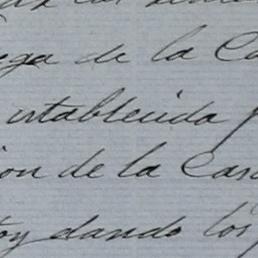 ega de la Ca
establecida
ion de la Cas
oy dando los